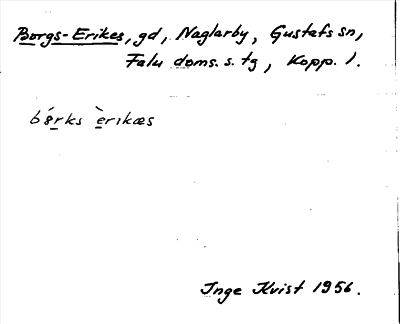 Borgs-Erikes, gd, Naglarby, Gustafs sn,
Falu doms. s. tg, Kopp. l.
erikæs
Inge Kvist 1956.